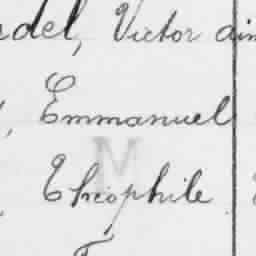 del, Victor
Emmanuel
M
Théophile